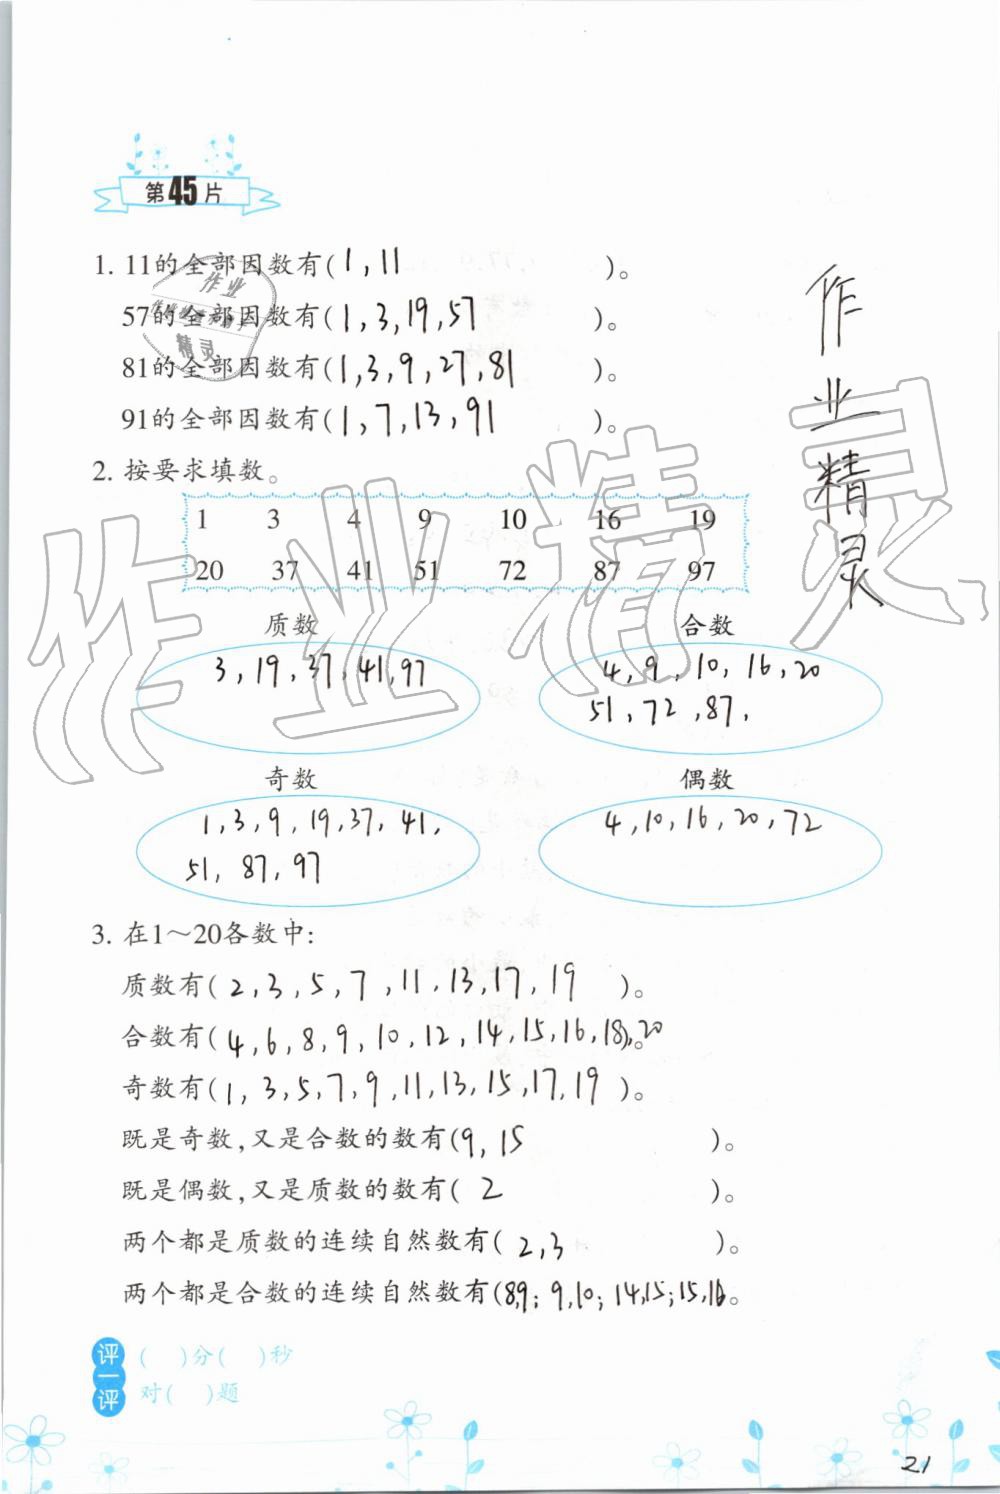 第45片
1. 11的全部因数有(1,11)。
57的全部因数有(1,3,19,57)。
81的全部因数有(1,3,9,27,81)。
91的全部因数有(1,7,13,91)。
2. 按要求填数。
1 3 4 9 10 16 19
20 37 41 51 72 87 97
质数 合数
3,19,37,41,97
4,9,10,16,20
51,72,87,
奇数 偶数
1,3,9,19,37,41,
51,87,97
4,10,16,20,72
3. 在1~20各数中:
质数有(2,3,5,7,11,13,17,19)。
合数有(4,6,8,9,10,12,14,15,16,18),20。
奇数有(1,3,5,7,9,11,13,15,17,19)。
既是奇数,又是合数的数有(9,15)。
既是偶数,又是质数的数有(2)。
两个都是质数的连续自然数有(2,3)。
两个都是合数的连续自然数有(8,9;9,10;14,15;15,16。
评一评
( )分( )秒
对( )题
21
作业精灵
作业精灵
作业
精灵